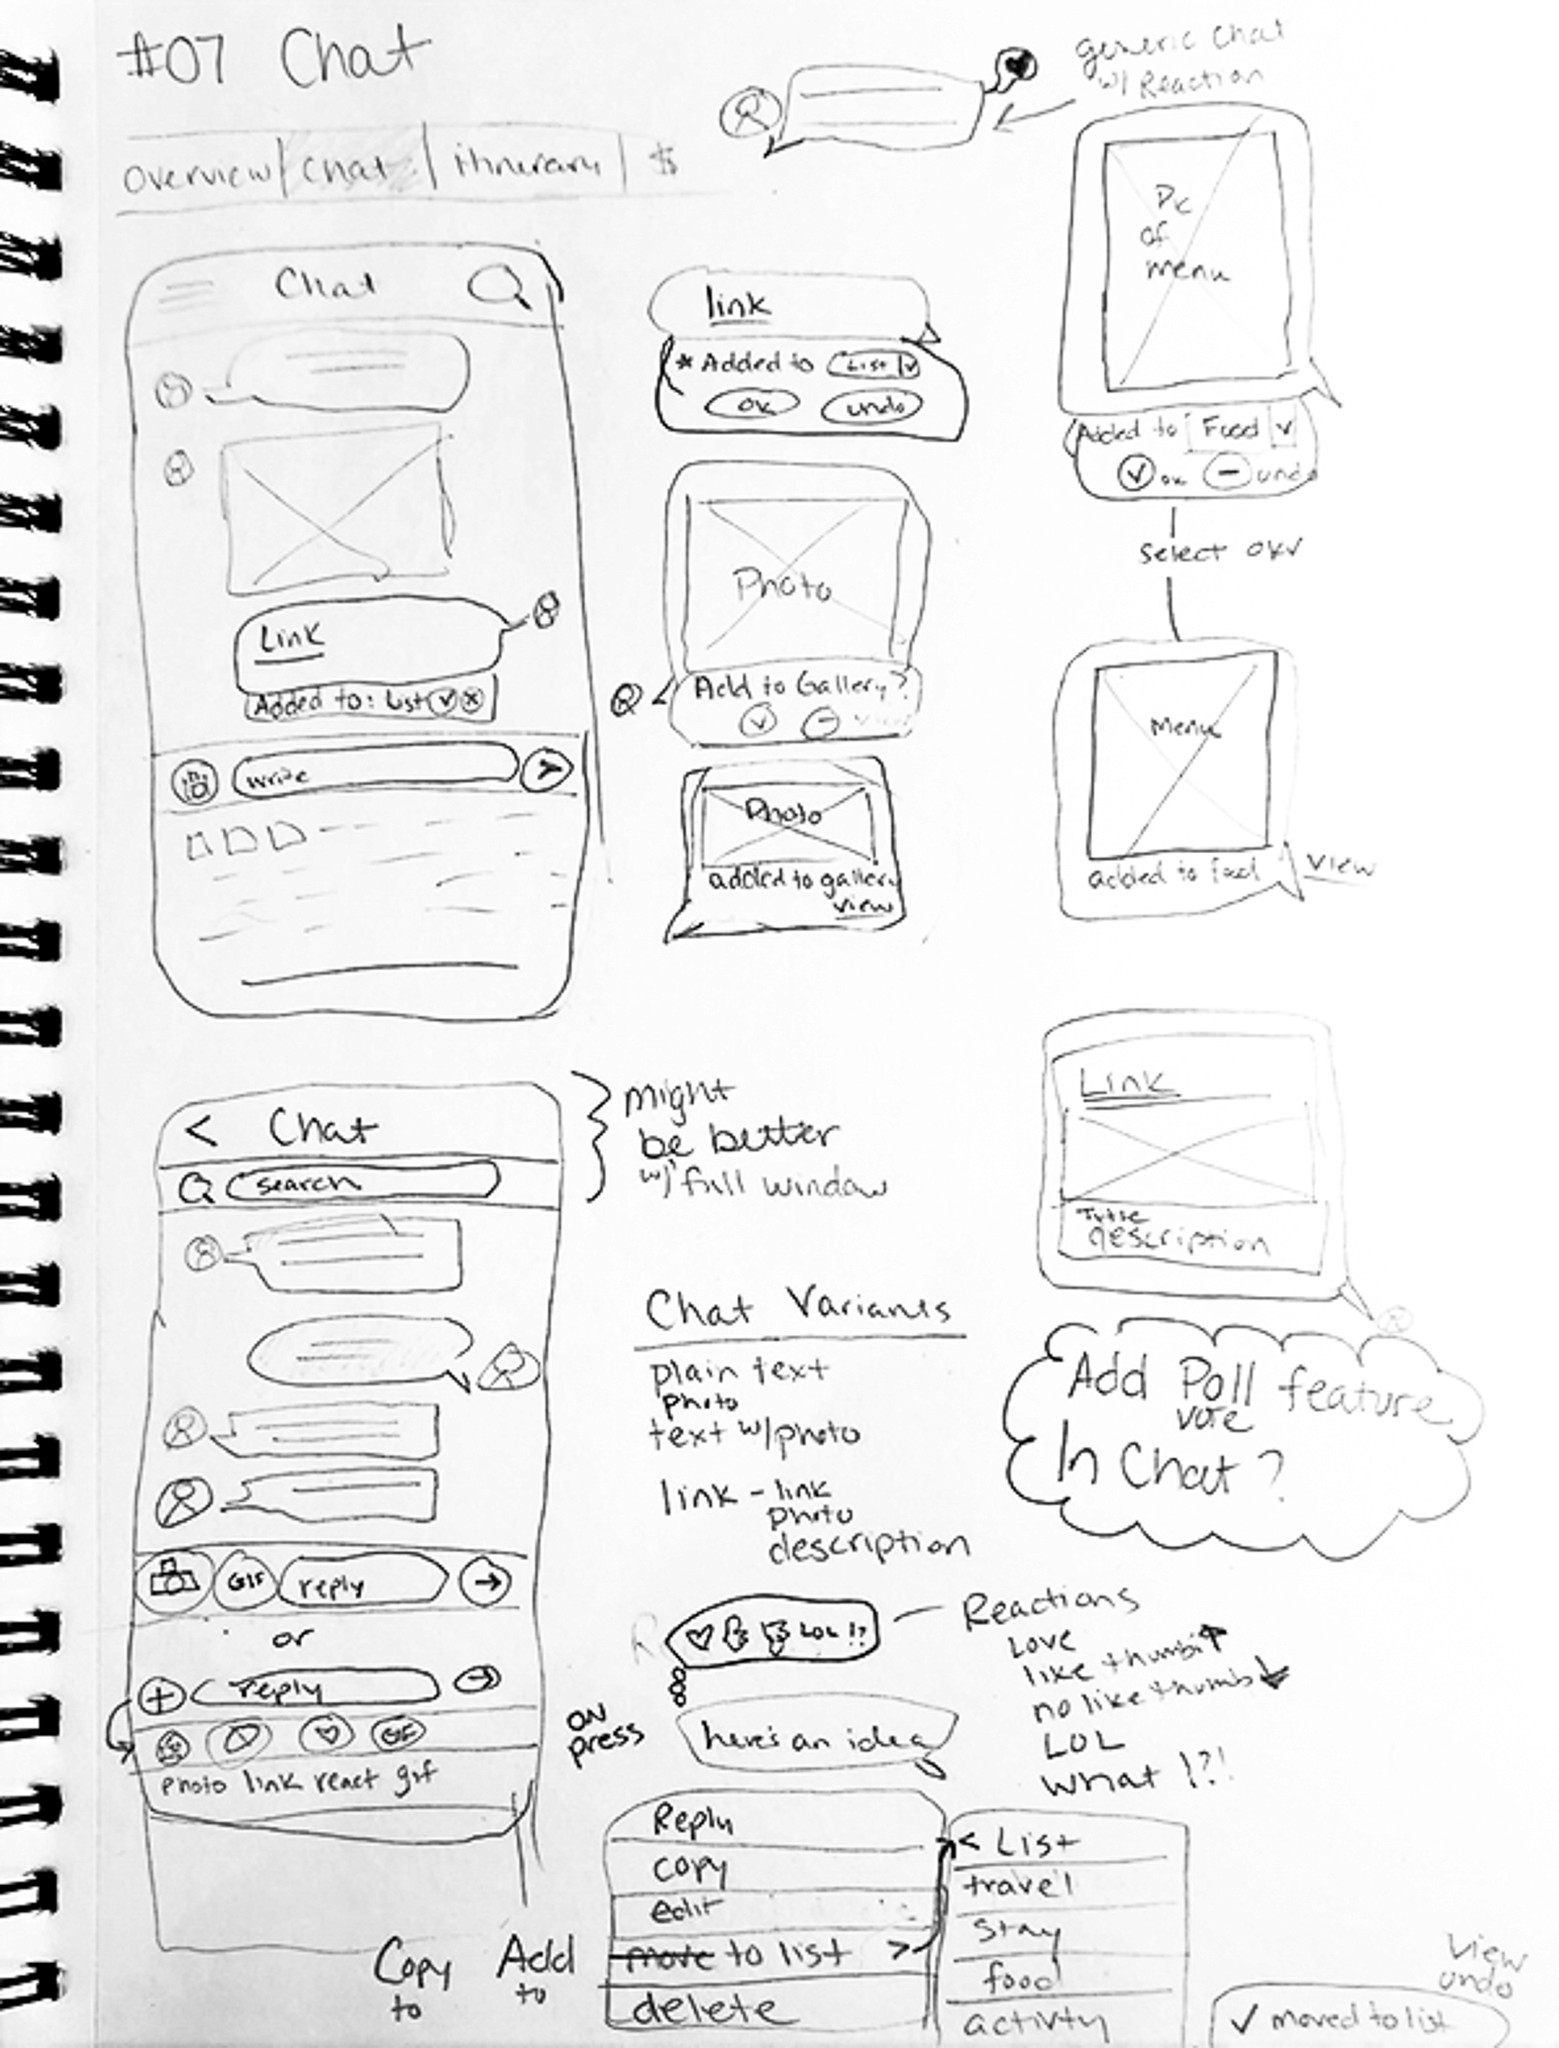 #07 Chat
generic chat
w/ Reaction
overview | chat | itinerary | $
Chat
Link
Added to: List
write
link
* Added to List
ok undo
Photo
Add to Gallery?
view
Photo
added to gallery
view
Pic
of
menu
Added to Food
ok undo
select ok
Menu
added to food
view
< Chat
search
might
be better
w/ full window
GIF reply
or
+ reply
GIF
photo link react gif
Link
Title
description
Chat Variants
plain text
photo
text w/photo
link - link
photo
description
Add Poll feature
vote
In Chat?
LOL !?
Reactions
Love
like thumb
no like thumb
LOL
what !?!
on
press
here's an idea
Reply
copy
edit
move to list >
delete
Copy
to
Add
to
< List
travel
stay
food
activty
view
undo
✓ moved to list